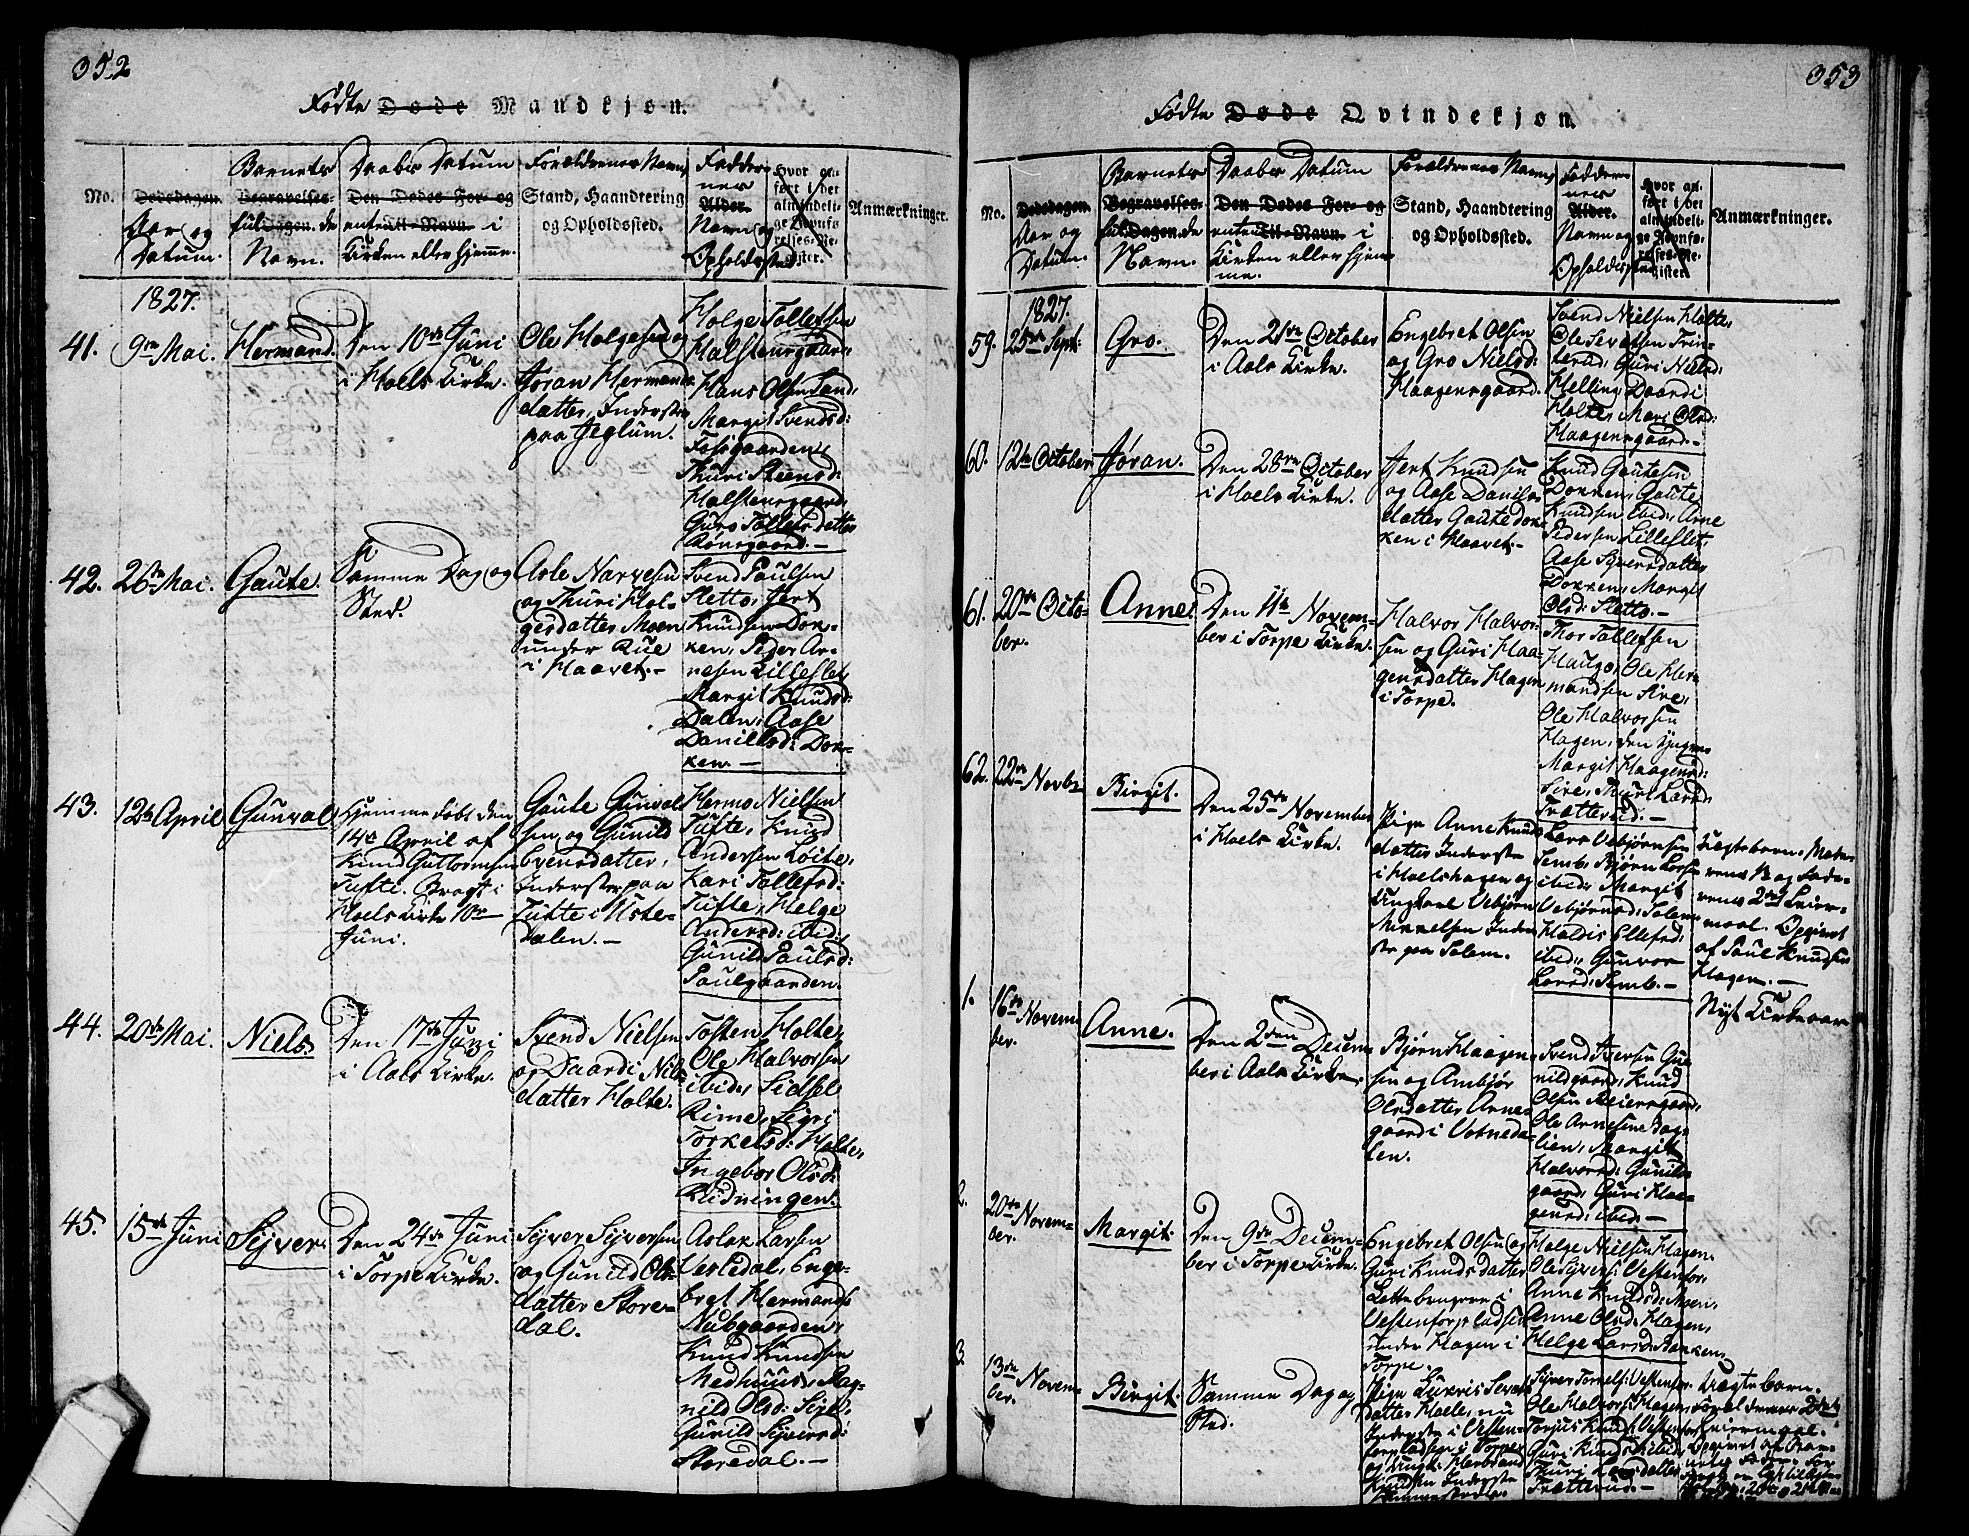 352
Fødte Døde Mandkjøn.
No.
Dødsdagen.
Aar og
Datum.
Barnets
Begravelses-
fulde
Dagen.
Navn.
Daabs Datum
Den Dødes For- og
enten Til-Navn i
Kirken eller hjemme.
Forældrenes Navn,
Stand, Haandtering
og Opholdssted.
Faddernes
Alder.
Navn og
Opholdssted.
Hvor an-
ført i det
almindeli-
ge Jevnfø-
relses-Re-
gister.
Anmærkninger.
1827.
41.
9de Mai.
Hermand.
Den 10de Juni
i Hoels Kirke.
Ole Helgesen og
Jøran Hermands
datter, Inderster
paa Jeglum.
Helge Tollefsen
Halstensgaard,
Hans Olsen Sand,
Margit Svendsd:
Fossgaarden,
Thuri Steensd:
Halstensgaard,
Guro Tollefs datter
Rønsgaard.-
42.
26de Mai.
Gaute.
Samme Dag og
Sted.
Asle Narvesen
og Thuri Hol-
gersdatter Moen
under Rue
i Haavet.-
Svend Paulsen
Sletto, Jert
Knudsen Dok-
ken, Peder Ar-
nesen Lilleslet,
Margit Knudsd:
Dalen, Aase
Danielsd: Dok-
ken.-
43.
12te April
Gunval
Hjemmedøbt den
14de April af
Knud Guttormsen
Tufte. Bragt i
Hoels Kirke 10de
Juni.
Gaute Gunval-
sen og Gunild
Svensdatter,
Inderster paa
Tufte i Uste-
dalen.-
Hermo Nielsen
Tufte, Knud
Andersen Løite,
Kari Tollefsd:
Tufte, Helge
Andersd: ibid:,
Gunild Paulsd:
Paulgaarden.
44.
20de Mai.
Niels.
Den 17de Juni
i Aals Kirke.
Svend Nielsen
og Daardi Nils-
datter Holte.
Tosten Holte,
Ole Halvorsen
ibid:, Sidsel
Rime, Sigri
Torkelsd: Holte,
Ingebor Olsd:
Ridningen.
45.
15de Juni
Sejver.
Den 24de Juni
i Torpe Kirke.
Sejver Sejversen
og Gunild Ols-
datter Store-
dal.
Aslak Larsen
Lesledal, Enge-
bret Hermands
Nubgaarden,
Knud Knudsen
Medhuus, Rag-
nild Olsd: Sire,
Gunild Sejversd:
Storedal.-
353
Fødte Døde Qvindekjøn.
No.
Dødsdagen.
Aar og
Datum.
Barnets
Begravelses-
fulde
Dagen.
Navn.
Daabs Datum
Den Dødes For- og
enten Til-Navn i
Kirken eller hjem-
me.
Forældrenes Navn,
Stand, Haandtering
og Opholdssted.
Fadder-
nes
Alder.
Navn og
Opholdssted
Hvor an-
ført i det
almindeli-
ge Jevnfø-
relses-Re-
gister.
Anmærkninger.
1827.
59.
25de Sept:
Gro.
Den 21de October
i Aals Kirke.
Engebret Olsen
og Gro Nielsd:
Haagensgaard.
Svend Nielsen Holte,
Ole Sevatsen Trin-
terud, Guri Nielsd:
Helling, Daardi
Holte, Mari Olsd:
Haagensgaard.-
60.
12te October
Jøran.
Den 28de October
i Hoels Kirke.
Jert Knudsen
og Aase Daniels
datter Gautedok-
ken i Haavet.-
Knud Gautesen
Dokken, Gaute
Knudsen ibid:, Arne
Pedersen Lilleslet,
Aase Syversdatter
Dokken, Margit
Olsd: Sletto.-
61.
20de Octo-
ber.
Anne.
Den 11te Novem-
ber i Torpe Kirke.
Halvor Halvor-
sen og Guri Haa-
gensdatter Hagen
i Torpe.
Thor Tollefsen
Haugo, Ole Her-
mandsen Sire,
Ole Halvorsen
Hagen, den yngre,
Margit Haagensd:
Sire, Thuri Larsd:
Trætterud.-
62.
22de Novbr
Birgit.
Den 25de November
i Hoels Kirke.
Pige Anne Knuds
datter Inderste
i Hoelshagen og
Ungkarl Vebjørn
Mikkelsen Inder-
ste paa Solem.
Lars Vebjørnsen
Semb, Bjørn Larsen
ibid:, Margit
Vebjørnsd: Solem,
Haldis Ellefsd:
ibid:, Gunvor
Larsd: Semb.-
Uægte barn. Mode-
rens og Fade-
rens 2det Leier-
maal. Opgivet
af Paul Knudsen
Hagen.-
Nyt Kirkeaar
1.
16de Novem-
ber.
Anne.
Den 2den Decem-
ber i Aals Kirke.
Bjørn Haagen-
sen og Ambjør
Olsdatter Arne-
gaard i Votneda-
len.
Svend Iversen Gu-
nildgaard, Knud
Olsen Meiersgaard,
Ole Arnesen Bag-
lien, Margit
Halvorsd: Gunild-
gaard, Guri Haa-
gensd: ibid:-
2.
20de Novem-
ber.
Margit.
Den 9de Decem-
ber i Torpe Kirke.
Engebret Olsen og
Guri Knudsdatter
i
Vestenforpladsen
under Hagen i
Torpe.
Helge Nielsen Hagen,
Ole Syvers: Vestenfor,
Anne Knudsd: Moen,
Anne Olsd: Hagen,
Helge Larsd: Bakken,
3.
13de Novem-
ber.
Birgit.
Samme Dag og
Sted.
Pige Lukris Sevats
datter Hoele, nu
Inderste i Vesten-
forpladsen i Torpe
og Ungk: Herbrand
Knudsen Inderste
Syver Torkels: Vestenfor,
Ole Halvors: Hagen,
Torjus Knuds: Vestenfor,
Guri Knudsd: ibid:,
Thuri Larsdatter
Trætterud.-
Uægte barn.
Forældrenes 2det
Leiermaal.
Opgivet af Bar-
nets Fader.